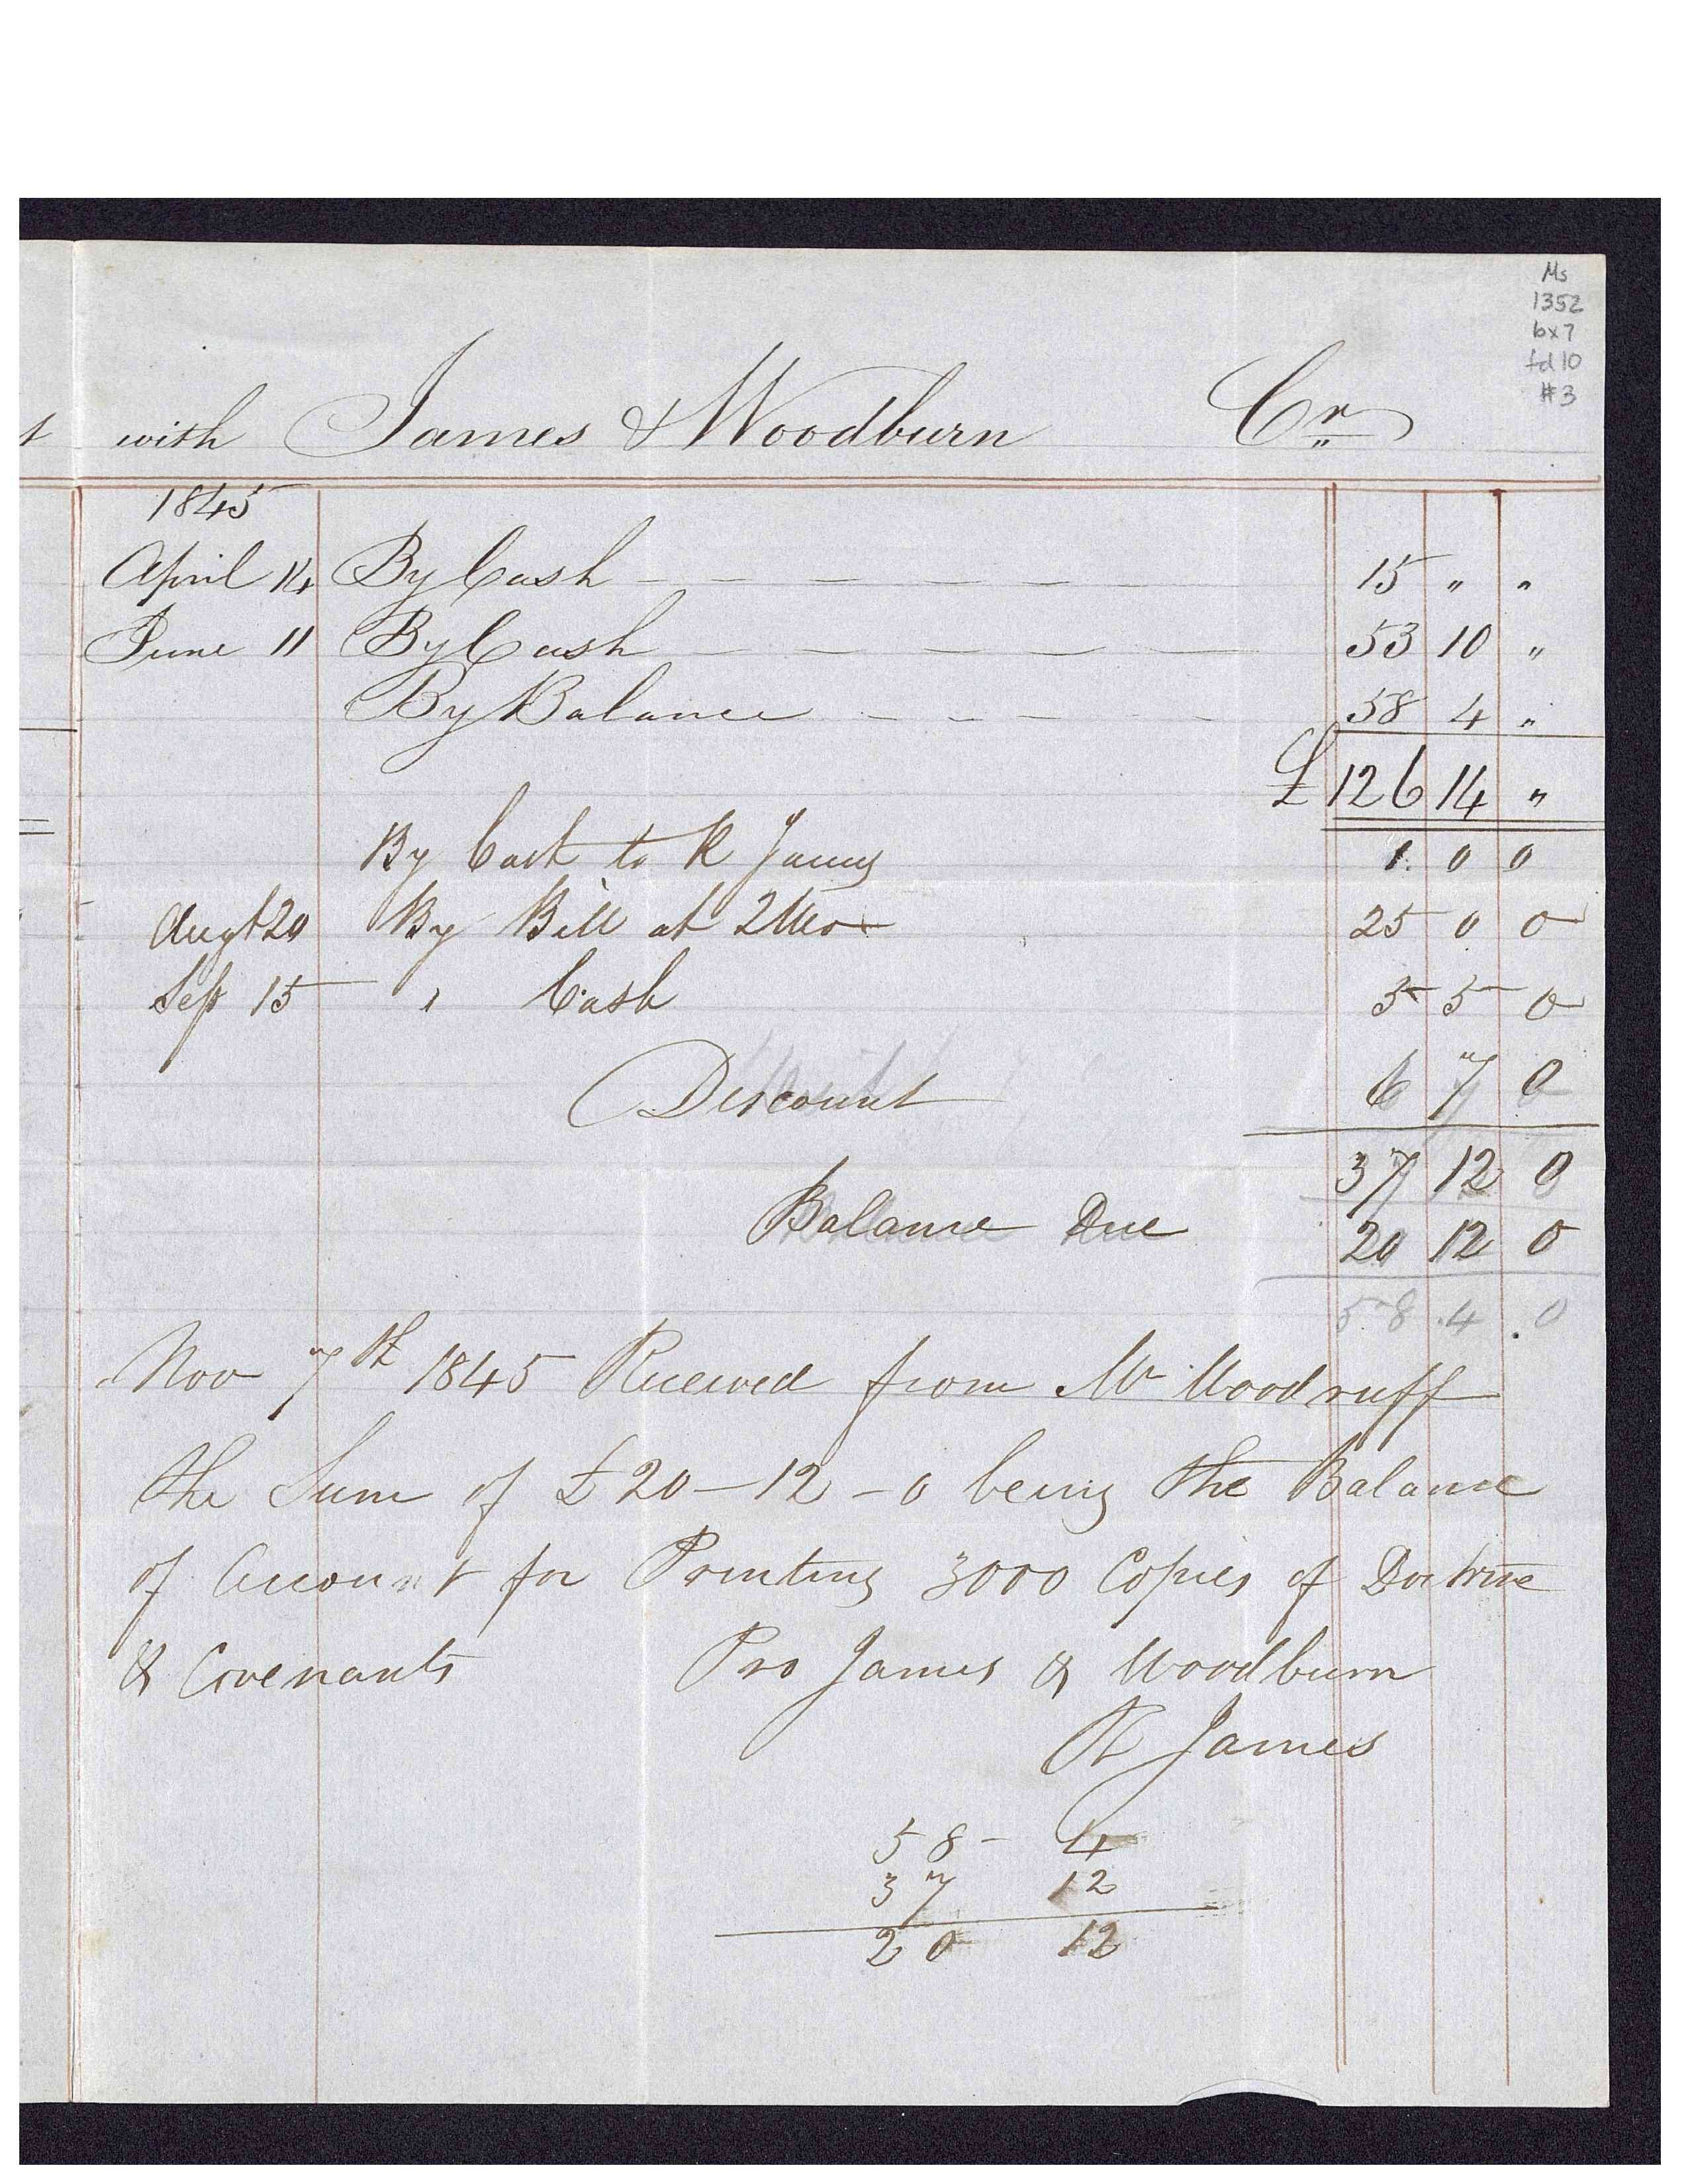 Ms
1352
bx7
fd10
#3
t with James & Woodburn Cr
1845
April 14 By Cash 15 " "
June 11 By Cash 53 10 "
By Balance 58 4 "
£ 126 14 "
By Cash to R James 1 0 0
Augt 20 By Bill at 2 Mo 25 0 0
Sep 15 " Cash 5 5 0
Discount 6 7 0
37 12 0
Balance Due 20 12 0
58 .4 .0
Nov 7th 1845 Received from Mr Woodruff
the Sum of £20-12-0 being the Balance
of Account for Printing 3000 Copies of Doctrine
& Covenants Pro James & Woodburn
R James
58- 4
37 12
20 12